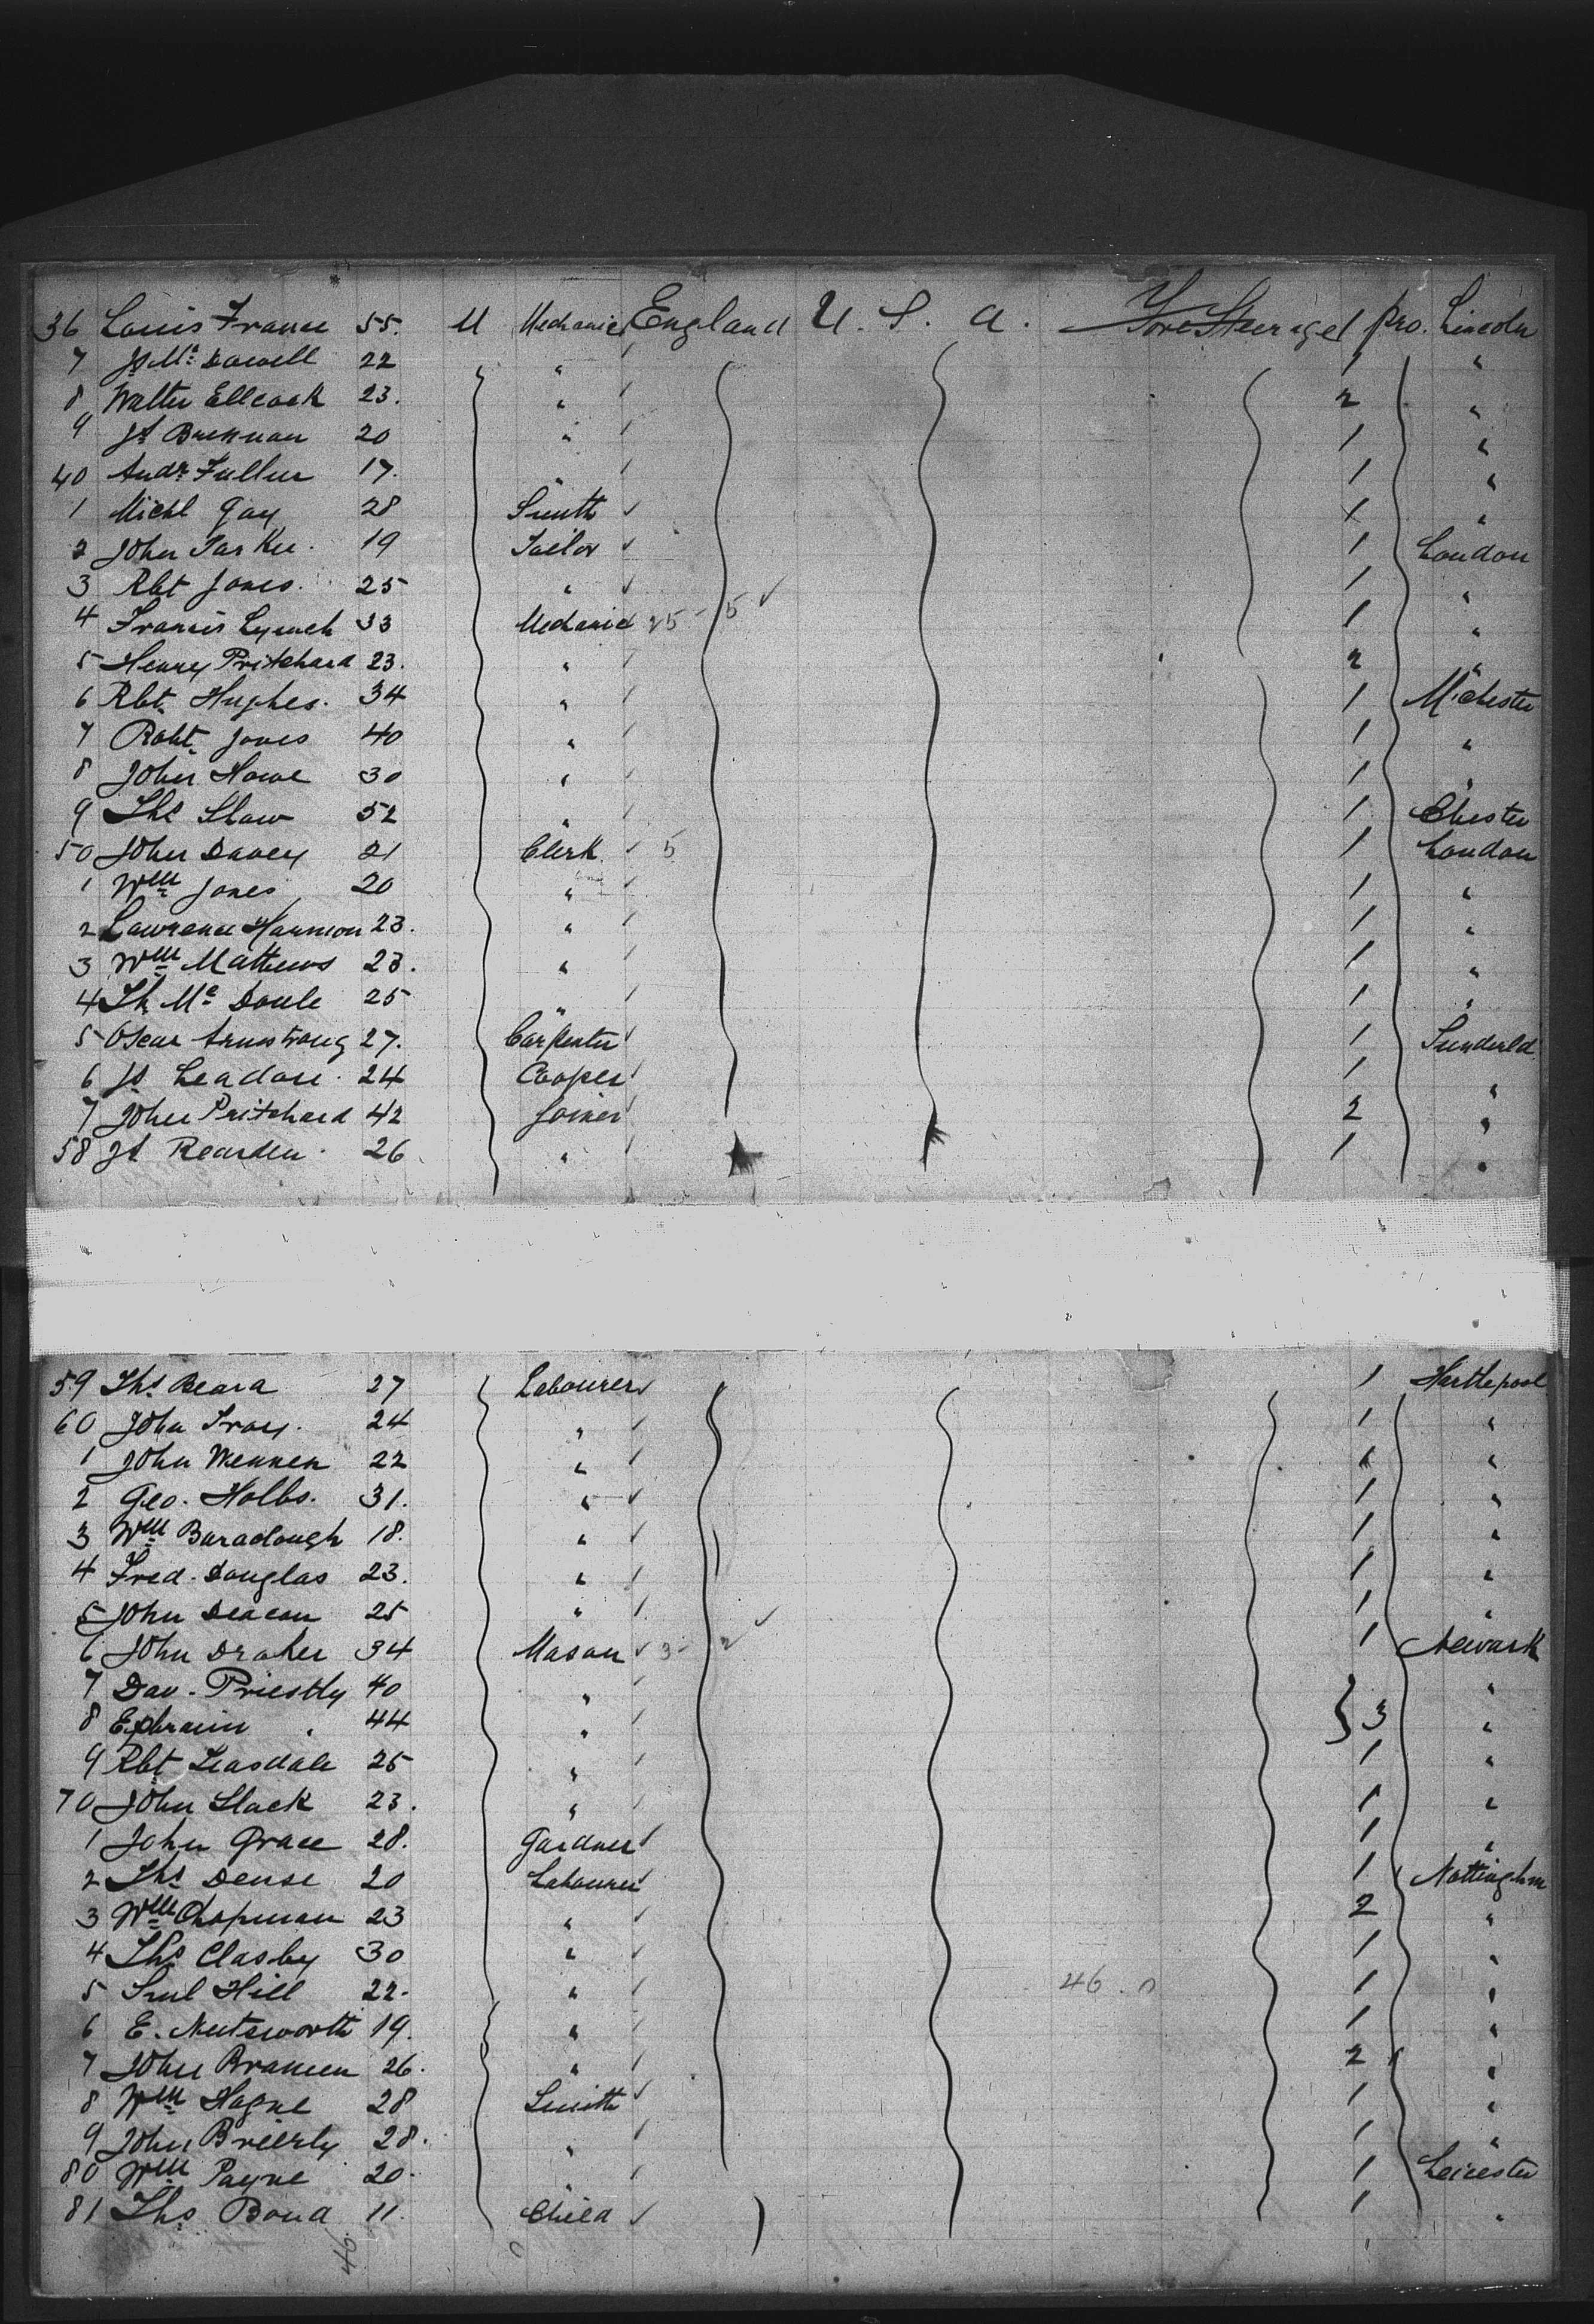 36 Louis France 55. M Mechanic England U. S. A. Fore Steerage 1 pro. Lincoln
7 Js Mc Dowell 22 " 1 "
8 Walter Ellcock 23. " 2 "
9 Js Brennan 20 " 1 "
40 Andr Fuller 17. " 1 "
1 Michl Gay 28 Smith 1 "
2 John Parker. 19 Tailor 1 London
3 Rbt Jones. 25 " 1 "
4 Francis Lynch 33 Mechanic 25 - 5 1 "
5 Henry Pritchard 23. " 2 "
6 Rbt Hughes. 34 " 1 M'chester
7 Robt Jones 40 " 1 "
8 John Howe 30 " 1 "
9 Ths Shaw 52 " 1 Chester
50 John Davey 21 Clerk 5 1 London
1 Wm Jones 20 " 1 "
2 Lawrence Hannon 23. " 1 "
3 Wm Mathews 23. " 1 "
4 Th Mc 25 " 1 "
5 Oscar Armstrong 27. Carpenter 1 Sunderld
6 Js Leadon. 24 Cooper 1 "
7 John Pritchard 42 Joiner 2 "
58 Js Rearden. 26 " 1 "
59 Ths 27 Labourer 1 Harthepool
60 John 24 " 1 "
1 John 22 " 1 "
2 Geo. Holbs. 31. " 1 "
3 Wm Baraclough 18. " 1 "
4 Fred. Douglas 23. " 1 "
5 John Deacon 25 " 1 "
6 John Draker 34 Mason 3 - 2 1 Newark
7 Dav. Priestly 40 " "
8 Ephraim " 44 " } 3 "
9 Rbt Teasdale 25 " 1 "
70 John Slack 23. " 1 "
1 John Grace 28. Gardner 1 "
2 Ths Dense 20 Labourer 1 Nottinghm
3 Wm Chapman 23 " 2 "
4 Ths Clasby 30 " 1 "
5 Sml Hill 22. " 46. 1 "
6 E. Nutsworth 19. " 1 "
7 John Bramen 26. " 2 "
8 Wm Hague 28 Smith 1 "
9 John Brierly 28. " 1 "
80 Wm Payne 20. " 1 Leicester
81 Ths Bond 11. Child 1 "
46